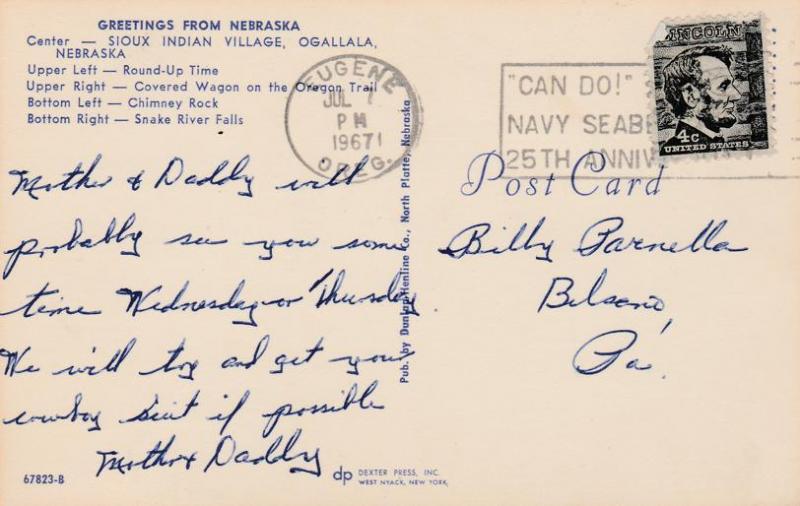 GREETINGS FROM NEBRASKA
Center — SIOUX INDIAN VILLAGE, OGALLALA,
NEBRASKA
Upper Left — Round-Up Time
Upper Right — Covered Wagon on the Oregon Trail
Bottom Left — Chimney Rock
Bottom Right — Snake River Falls
EUGENE
JUL
PM
1967
OREG.
"CAN DO!"
NAVY SEABE
25TH ANNIV
LINCOLN
4c
UNITED STATES
Post Card
Mother & Daddy will
probably see you some
time Wednesday or Thursday
We will try and get your
cowboy suit if possible
Mother & Daddy
Billy Parnella
Belsano,
Pa.
Pub. by Dunlap-Henline Co., North Platte, Nebraska
67823-B
dp DEXTER PRESS, INC.
WEST NYACK, NEW YORK